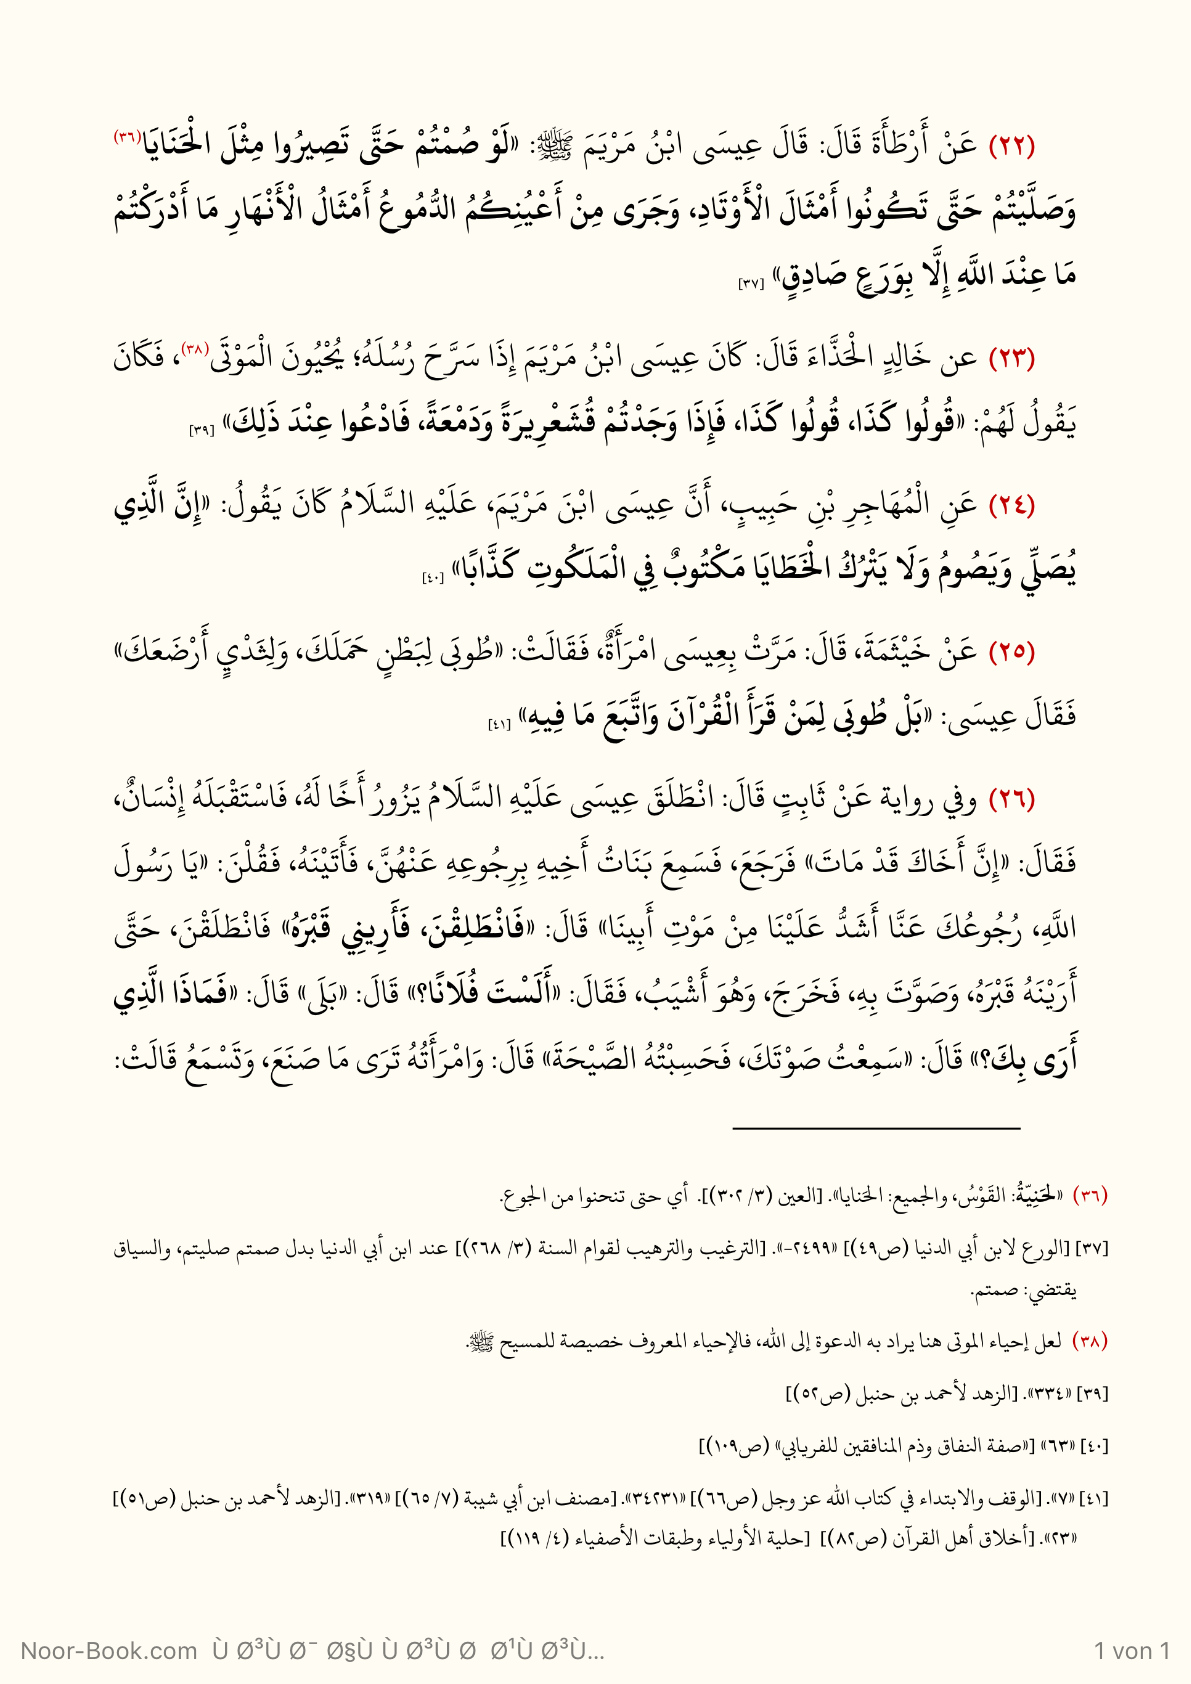 (٢٢) عَنْ أَرْطَأَةَ قَالَ: قَالَ عِيسَى ابْنُ مَرْيَمَ ﷺ: «لَوْ صُمْتُمْ حَتَّى تَصِيرُوا مِثْلَ الْحَنَايَا(٣٦)
وَصَلَّيْتُمْ حَتَّى تَكُونُوا أَمْثَالَ الْأَوْتَادِ، وَجَرَى مِنْ أَعْيُنِكُمُ الدُّمُوعُ أَمْثَالُ الْأَنْهَارِ مَا أَدْرَكْتُمْ
مَا عِنْدَ اللَّهِ إِلَّا بِوَرَعٍ صَادِقٍ» [٣٧]
(٢٣) عن خَالِدٍ الْحَذَّاءَ قَالَ: كَانَ عِيسَى ابْنُ مَرْيَمَ إِذَا سَرَّحَ رُسُلَهُ؛ يُحْيُونَ الْمَوْتَى(٣٨)، فَكَانَ
يَقُولُ لَهُمْ: «قُولُوا كَذَا، قُولُوا كَذَا، فَإِذَا وَجَدْتُمْ قُشَعْرِيرَةً وَدَمْعَةً، فَادْعُوا عِنْدَ ذَلِكَ» [٣٩]
(٢٤) عَنِ الْمُهَاجِرِ بْنِ حَبِيبٍ، أَنَّ عِيسَى ابْنَ مَرْيَمَ، عَلَيْهِ السَّلَامُ كَانَ يَقُولُ: «إِنَّ الَّذِي
يُصَلِّي وَيَصُومُ وَلَا يَتْرُكُ الْخَطَايَا مَكْتُوبٌ فِي الْمَلَكُوتِ كَذَّابًا» [٤٠]
(٢٥) عَنْ خَيْثَمَةَ، قَالَ: مَرَّتْ بِعِيسَى امْرَأَةٌ، فَقَالَتْ: «طُوبَى لِبَطْنٍ حَمَلَكَ، وَلِثَدْيٍ أَرْضَعَكَ»
فَقَالَ عِيسَى: «بَلْ طُوبَى لِمَنْ قَرَأَ الْقُرْآنَ وَاتَّبَعَ مَا فِيهِ» [٤١]
(٢٦) وفي رواية عَنْ ثَابِتٍ قَالَ: انْطَلَقَ عِيسَى عَلَيْهِ السَّلَامُ يَزُورُ أَخًا لَهُ، فَاسْتَقْبَلَهُ إِنْسَانٌ،
فَقَالَ: «إِنَّ أَخَاكَ قَدْ مَاتَ» فَرَجَعَ، فَسَمِعَ بَنَاتُ أَخِيهِ بِرِجُوعِهِ عَنْهُنَّ، فَأَتَيْنَهُ، فَقُلْنَ: «يَا رَسُولَ
اللَّهِ، رُجُوعُكَ عَنَّا أَشَدُّ عَلَيْنَا مِنْ مَوْتِ أَبِينَا» قَالَ: «فَانْطَلِقْنَ، فَأَرِينِي قَبْرَهُ» فَانْطَلَقْنَ، حَتَّى
أَرَيْنَهُ قَبْرَهُ، وَصَوَّتَ بِهِ، فَخَرَجَ، وَهُوَ أَشْيَبُ، فَقَالَ: «أَلَسْتَ فُلَانًا؟» قَالَ: «بَلَى» قَالَ: «فَمَاذَا الَّذِي
أَرَى بِكَ؟» قَالَ: «سَمِعْتُ صَوْتَكَ، فَحَسِبْتُهُ الصَّيْحَةَ» قَالَ: وَامْرَأَتُهُ تَرَى مَا صَنَعَ، وَتَسْمَعُ قَالَتْ:
(٣٦) «لحَنِيّةُ: القَوْسُ، والجميع: الحَنايا». [العين (٣/ ٣٠٢)]. أي حتى تنحنوا من الجوع.
[٣٧] [الورع لابن أبي الدنيا (ص٤٩)] «٢٤٩٩-». [الترغيب والترهيب لقوام السنة (٣/ ٢٦٨)] عند ابن أبي الدنيا بدل صمتم صليتم، والسياق
يقتضي: صمتم.
(٣٨) لعل إحياء الموتى هنا يراد به الدعوة إلى الله، فالإحياء المعروف خصيصة للمسيح ﷺ.
[٣٩] «٣٣٤». [الزهد لأحمد بن حنبل (ص٥٢)]
[٤٠] «٦٣» [«صفة النفاق وذم المنافقين للفريابي» (ص١٠٩)]
[٤١] «٧». [الوقف والابتداء في كتاب الله عز وجل (ص٦٦)] «٣٤٢٣١». [مصنف ابن أبي شيبة (٧/ ٦٥)] «٣١٩». [الزهد لأحمد بن حنبل (ص٥١)]
«٢٣». [أخلاق أهل القرآن (ص٨٢)] [حلية الأولياء وطبقات الأصفياء (٤/ ١١٩)]
Noor-Book.com Ù Ø³Ù Ø¯ Ø§Ù Ù Ø³Ù Ø Ø¹Ù Ø³Ù... 1 von 1